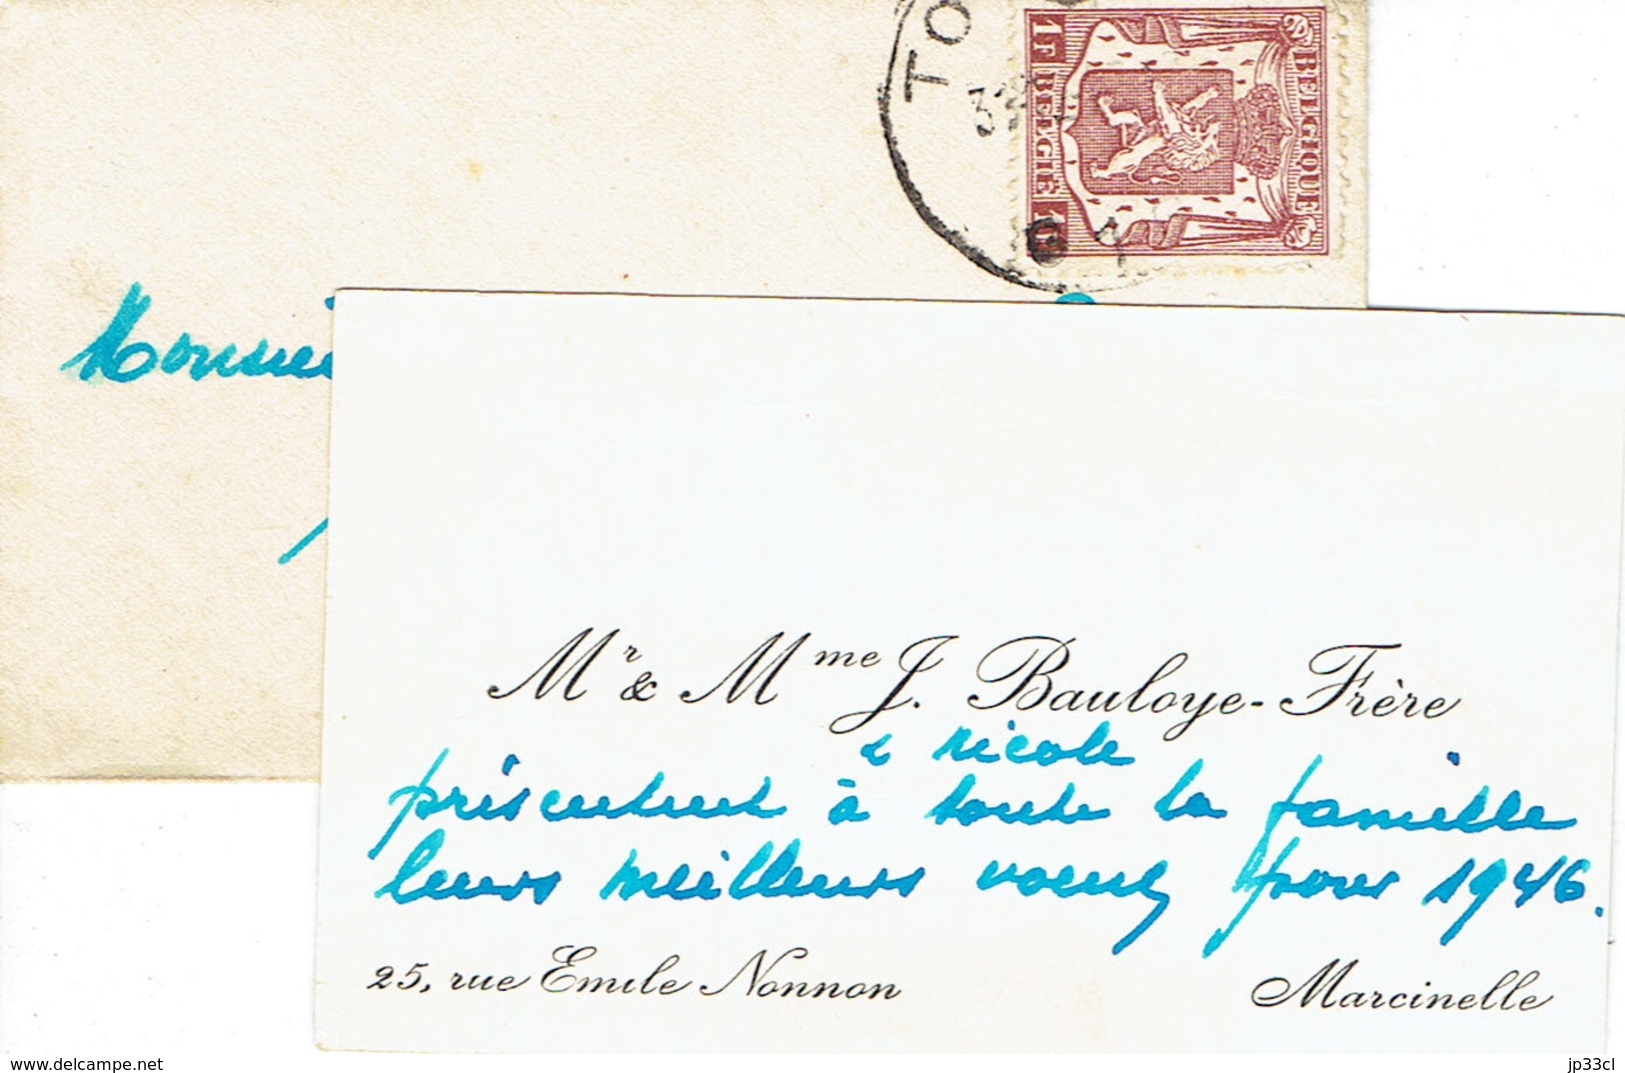 TO
31
1F BELGIË 1F
BELGIQUE
Monsie
Mr & Mme J. Bauloye-Frère
& Nicole
présentent à toute la famille
leurs meilleurs voeux pour 1946.
25, rue Emile Nonnon
Marcinelle
www.delcampe.net
jp33cl